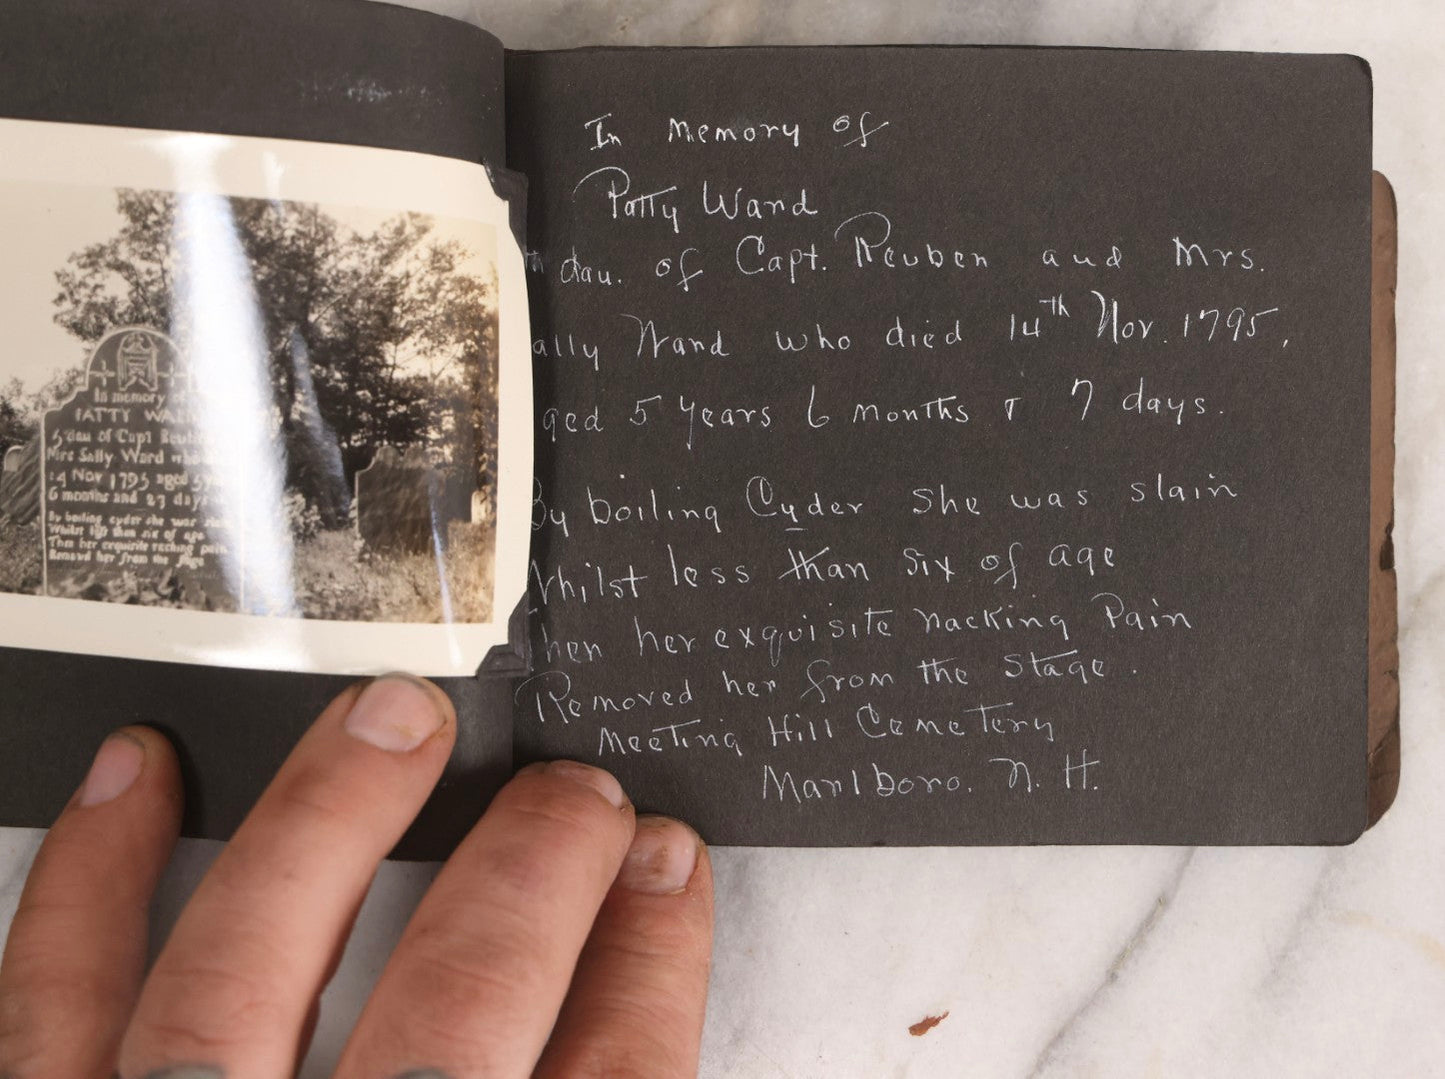 In memory of
PATTY WARD
5 dau of Capt Reuben
Mrs Sally Ward who
14 Nov 1795 aged 5 y
6 months and 27 days
By boiling cyder she was slain
Whilst less than six of age
Then her exquisite racking pain
Removd her from the stage
In memory of
Patty Ward
th dau. of Capt. Reuben and Mrs.
ally Ward who died 14th Nov. 1795,
ged 5 years 6 months & 7 days.
By boiling Cyder she was slain
Whilst less than six of age
Then her exquisite racking Pain
Removed her from the stage.
Meeting Hill Cemetery
Marlboro. N. H.